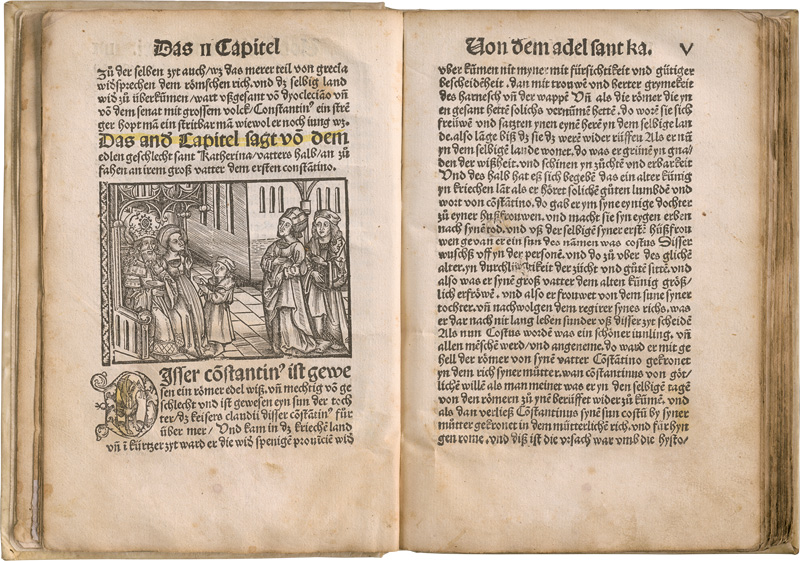 Das II Capitel
Zů der selben zyt auch/wz das merer teil von grecia
widsprechen dem rőmschen rich.vnd dz selbig land
wid zů überkűmen/wart vßgesant võ dyocleciāo vñ
võ dem senat mit grossem volck/Constantinꝰ ein strē
ger hopt mā ein stritbar mā wiewol er noch iung wz.
Das and Capitel sagt võ dem
edlen geschlecht sant Katherina/vatters halb/an zů
fahen an irem groß vatter dem ersten constātino.
DIsser cõstantinꝰ ist gewe
sen ein rőmer edel wiß.vñ mechtig võ ge
schlecht vnd ist gewesen eyn sun der toch
ter/dz keisers claudii disser cõstātinꝰ für
über mer/Vnd kam in dz kriechē land
vñ ī kürtzer zyt ward er die wid spenigē prouīciē wid
Von dem adel sant ka. V
vber kűmen nit myner mit fürsichtikeit vnd gűtiger
bescheidēheit.dan mit trouwē vnd herter grymekeit
des harnesch vñ der wappē Vñ als die rőmer die yn
en gesant hettē solichs vernűmē hettē.do worē sie sich
freűwē vnd satzten ynen eynē herē yn dem selbige lan
de.also lāge biß dz sie dz werē wider rüffeu Als er nů
yn dem selbigē lande wonet.do was er grűnē yn gna/
den der wißheit.vnd schinen yn zűchtē vnd erbarkeit
Vnd des halb hat eß sich begebē das ein alter kűnig
yn kriechen lāt als er hőret solichē gůten lumbdē vnd
wort von cõstātino.do gab er ym syne eynige dochter
zů eyner hußfrouwen.vnd macht sie syn eygen erben
nach synē tod.vnd vß der selbigē syner erstē hűßfrou
wen gevan er ein sun des namen was costus Disser
wuschß vff yn der personē.vnd do zů vber des glichē
alter.yn durchliichtikeit der zűcht vnd gůtē sittē.vnd
also was er synē groß vatter dem alten kűnig grőß/
lich erfrőwē.vnd also er frouwet von dem sune syner
tochter.vñ nachwolgen dem regirer synes richs.was
er dar nach nit lang leben sunder vß disser zyt scheidē
Als nun Costus wordē was ein schőner iunling.vñ
allen mēschē werd/vnd angeneme.do ward er mit ge
hell der rőmer von synē vatter Cõstātino gekronet
yn dem rich syner műtter.wan cõstantinus von gőt/
lichē willē als man meinet was er yn den selbigē tagē
von den rőmern zů ynē berüffet wider zů kűmē.vnd
als dan verließ Cõstantinus synē sun costū by syner
můtter gekronet in dem műtterlichē rich.vnd fár hyn
gen rome.vnd diß ist die vrsach war vmb die hysto/